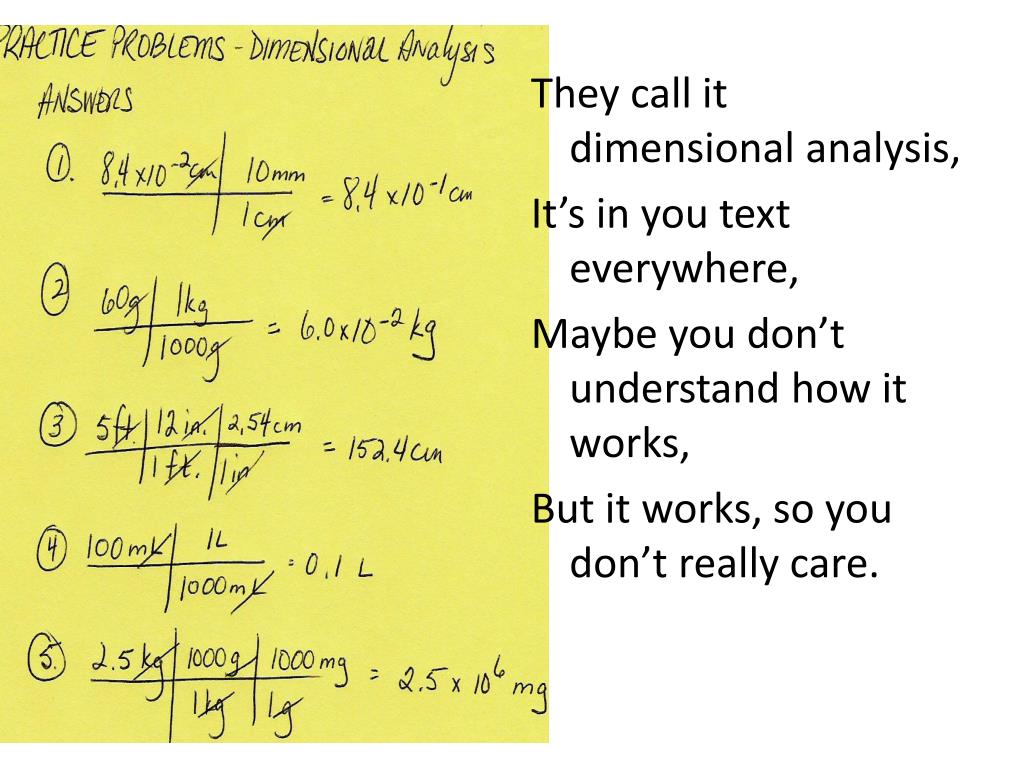 PRACTICE PROBLEMS - DIMENSIONAL ANALYSIS
ANSWERS
1. 8.4 x10⁻² cm | 10mm
1 cm
= 8.4 x10⁻¹ cm
2 60g | 1kg
1000g
= 6.0x10⁻² kg
3 5ft. | 12 in. | 2.54cm
1 ft. | 1 in
= 152.4cm
4 100mL | 1L
1000mL
= 0.1 L
5. 2.5 kg | 1000g | 1000 mg
1kg | 1g
= 2.5 x 10⁶ mg
They call it
dimensional analysis,
It’s in you text
everywhere,
Maybe you don’t
understand how it
works,
But it works, so you
don’t really care.